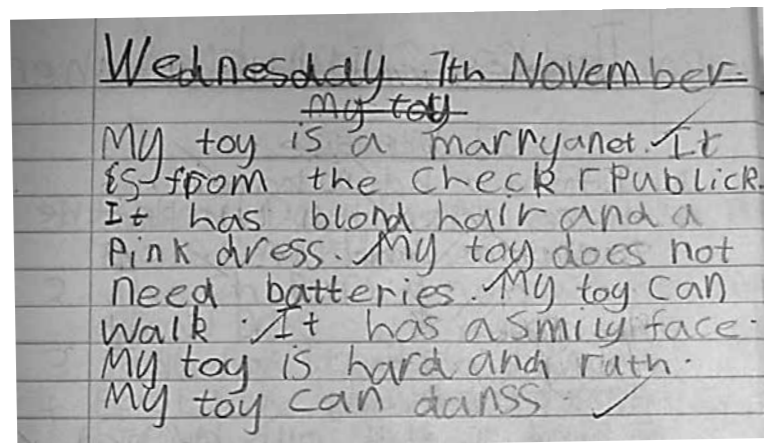 Wednesday 7th November.
My toy
My toy is a marryanet. It
is from the Check rPublick.
It has blond hair and a
Pink dress. My toy does not
need batteries. My toy can
walk. It has a smily face.
My toy is hard and ruth.
My toy can danss.